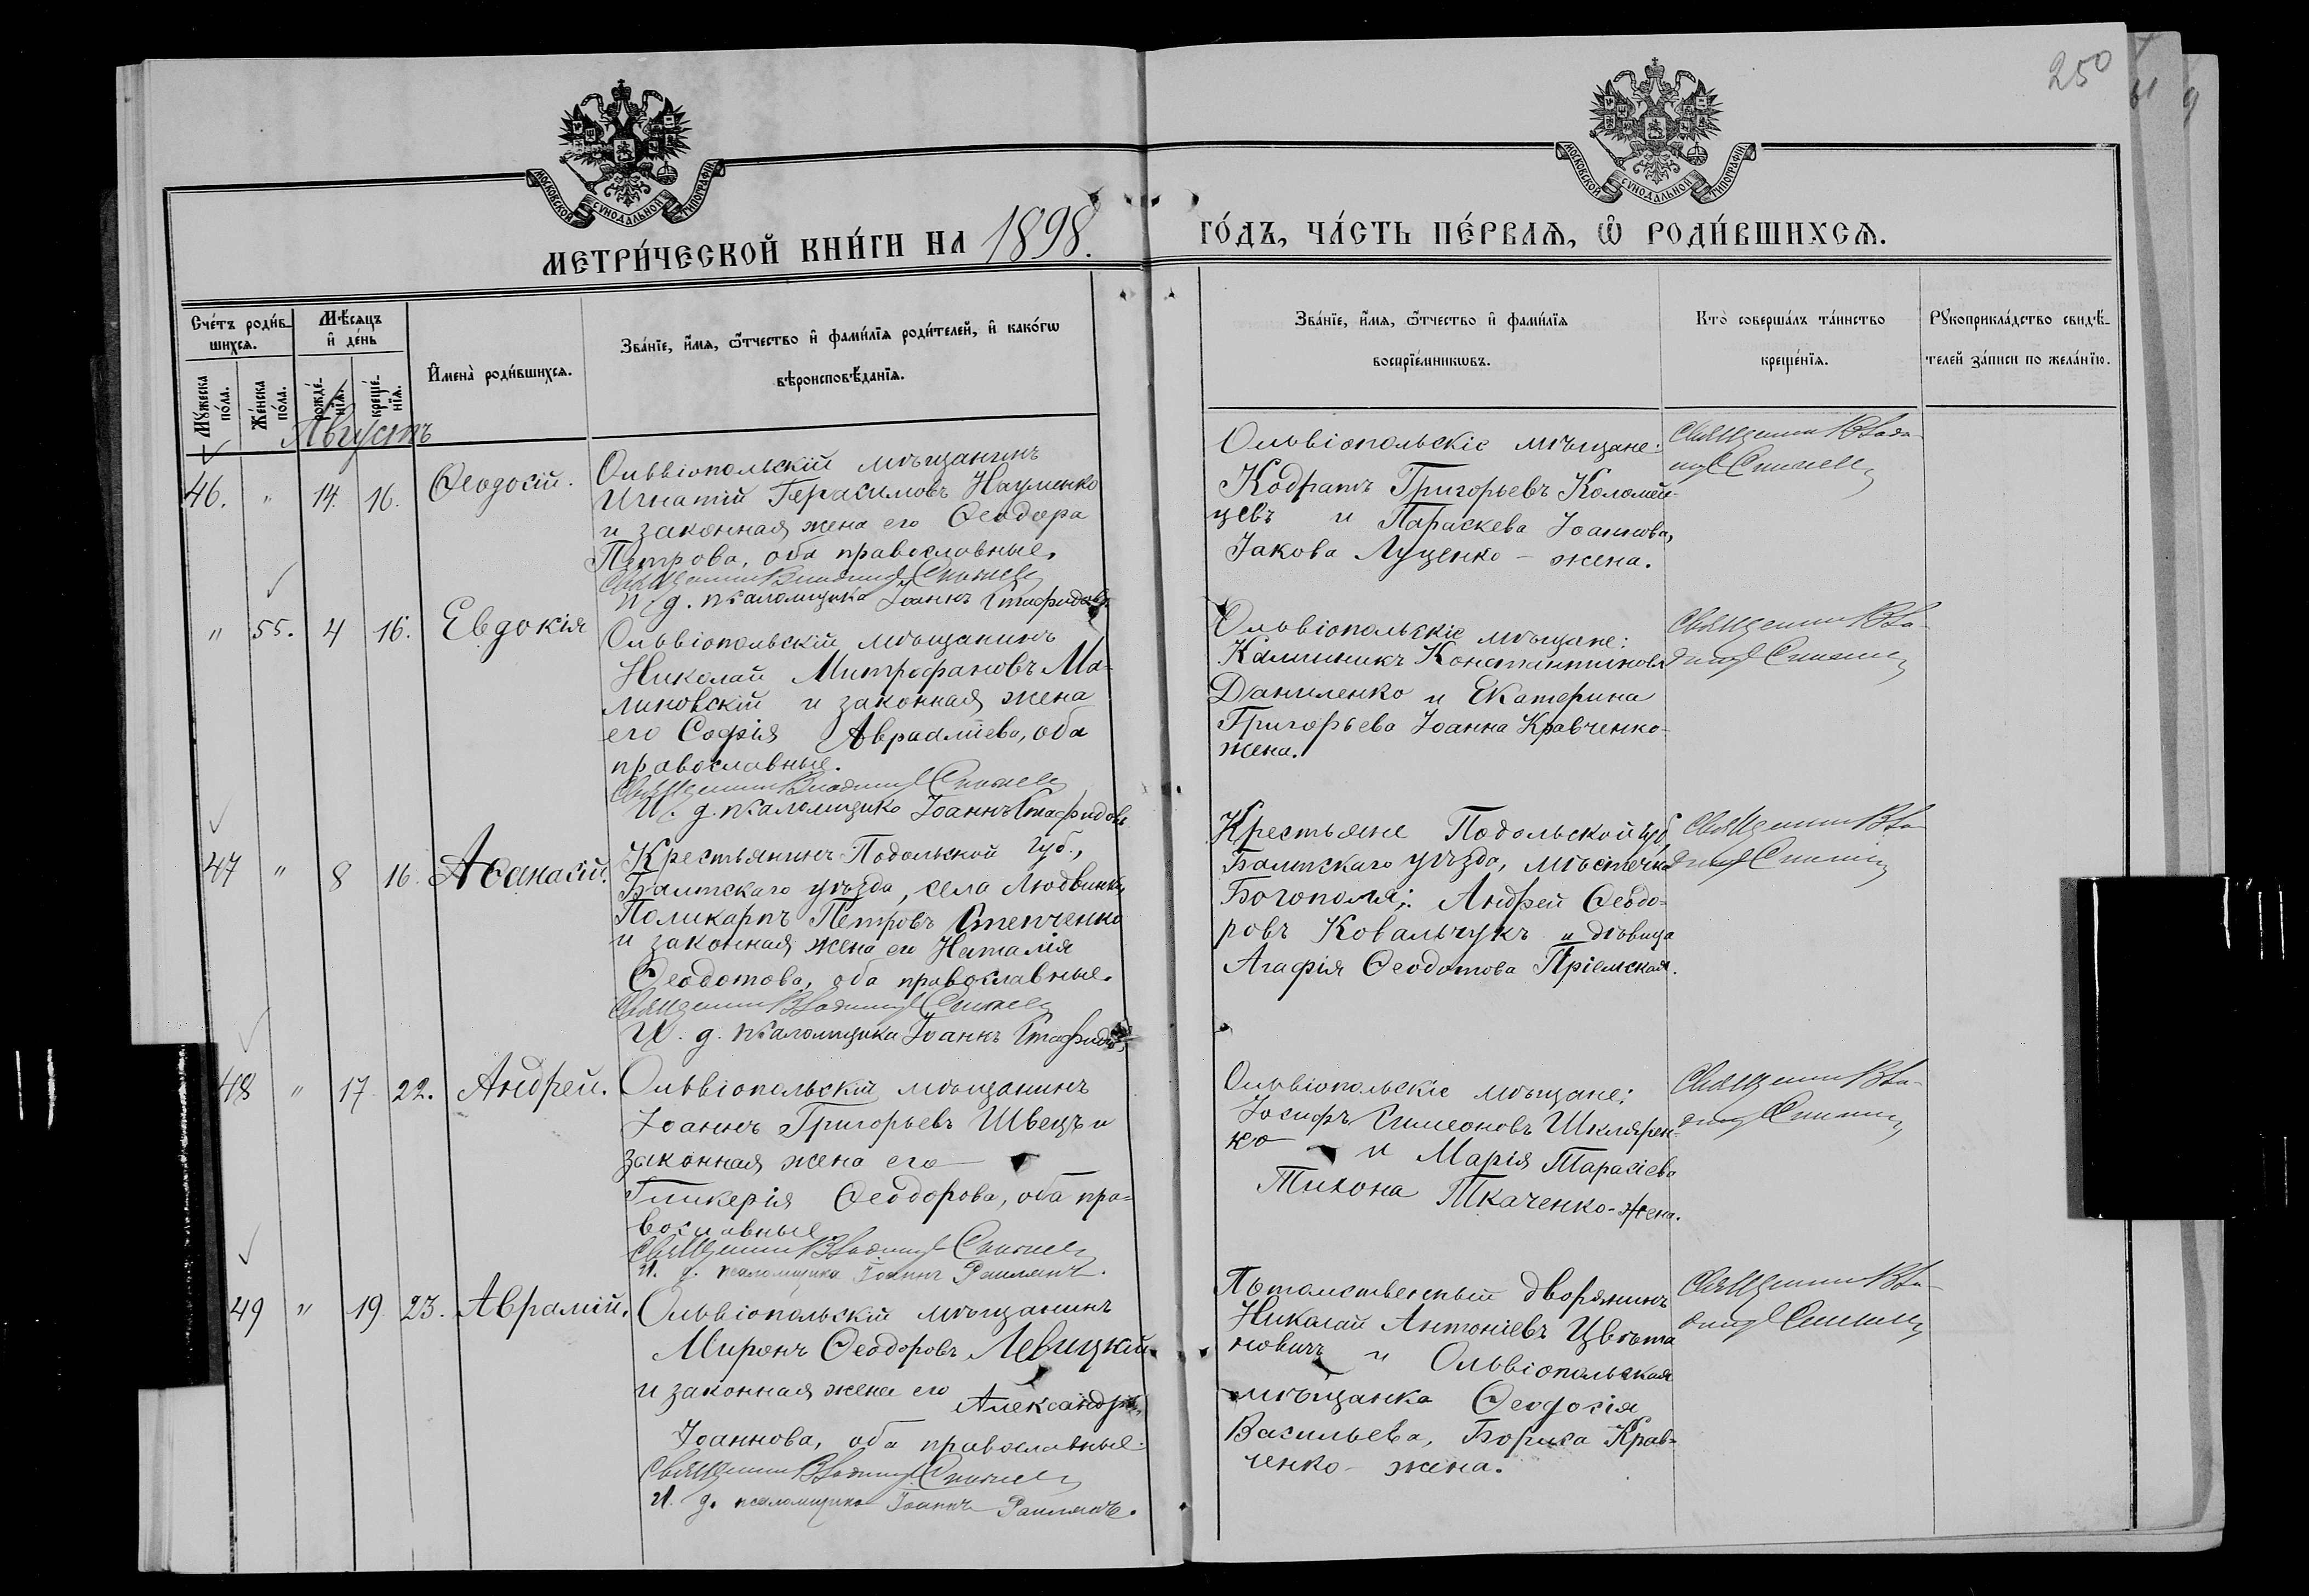 250
МОСКОВСКОЙ СѴНОДАЛЬНОЙ ТИПОГРАФІИ
МОСКОВСКОЙ СѴНОДАЛЬНОЙ ТИПОГРАФІИ
МЕТРИ́ЧЕСКОЙ КНИ́ГИ НА 1898.
ГО́ДЪ, ЧА́СТЬ ПЕ́РВАѦ, Ѡ РОДИ́ВШИХСѦ.
Сче́тъ роди́в-
шихсѧ.
Мꙋ́жеска по́ла.
Же́нска по́ла.
Мѣ́сѧцъ и҆ де́нь
рожде́-нїѧ.
креще́-нїѧ.
И҆мена̀ роди́вшихсѧ.
Зва́нїе, и҆́мѧ, ѻ҆́тчество и҆ фами́лїѧ роди́телей, и҆ како́гѡ
вѣроисповѣ́данїѧ.
Зва́нїе, и҆́мѧ, ѻ҆́тчество и҆ фами́лїѧ
воспрїе́мникѡвъ.
Кто̀ соверша́лъ та́инство
креще́нїѧ.
Рꙋкоприкла́дство свидѣ́-
телей за́писи по жела́нїю.
Августъ
46. " 14. 16. Ѳеодосій.
Ольвіопольскій мѣщанинъ
Игнатій Герасимовъ Науменко
и законная жена его Ѳеодора
Петрова, оба православные,
Священникъ Владимiръ
И. д. псаломщика Іоаннъ Стафидовъ
Ольвіопольскіе мѣщане:
Кодратъ Григорьевъ Коломій-
цевъ и Параскева Іоаннова,
Іакова Луценко - жена.
Священникъ Влади-
" 55. 4 16. Евдокія
Ольвіопольскій мѣщанинъ
Николай Митрофановъ Ма-
линовскій и законная жена
его Софія Авраамiева, оба
православные.
Священникъ Владимiръ
И. д. псаломщика Іоаннъ Стафидовъ
Ольвіопольскіе мѣщане:
Каллиникъ Константиновъ
Даниленко и Екатерина
Григорьева Іоанна Кравченко-
жена.
Священникъ Вла-
47 " 8 16. Аѳанасій.
Крестьянинъ Подольской губ.,
Балтскаго уѣзда, села Людвинки
Поликарпъ Петровъ Степченко
и законная жена его Наталія
Ѳеодотова, оба православные.
Священникъ Владимiръ
И. д. псаломщика Іоаннъ Стафидовъ
Крестьяне Подольской губ.
Балтскаго уѣзда, мѣстечка
Богополя: Андрей Ѳеодо-
ровъ Ковальчукъ и дѣвица
Агафія Ѳеодотова Пріемская.
Священникъ Вла-
48 " 17. 22. Андрей.
Ольвіопольскій мѣщанинъ
Іоаннъ Григорьевъ Швецъ и
законная жена его
Гликерія Ѳеодорова, оба пра-
вославные
Священникъ Владимiръ
И. д. псаломщика Іоаннъ Раилянъ.
Ольвіопольскіе мѣщане:
Іосифъ Симеоновъ Шкляренко-
ко и Марія Тарасіева
Тихона Ткаченко-жена.
Священникъ Вла-
49 " 19. 23. Аврамій.
Ольвіопольскій мѣщанинъ
Миронъ Ѳеодоровъ Левицкій
и законная жена его Александра
Іоаннова, оба православные.
Священникъ Владимiръ
И. д. псаломщика Іоаннъ Раилянъ.
Потомственный дворянинъ
Николай Антоніевъ Цвѣта
новичъ и Ольвіопольская
мѣщанка Ѳеодосія
Васильева, Бориса Крав-
ченко - жена.
Священникъ Вла-